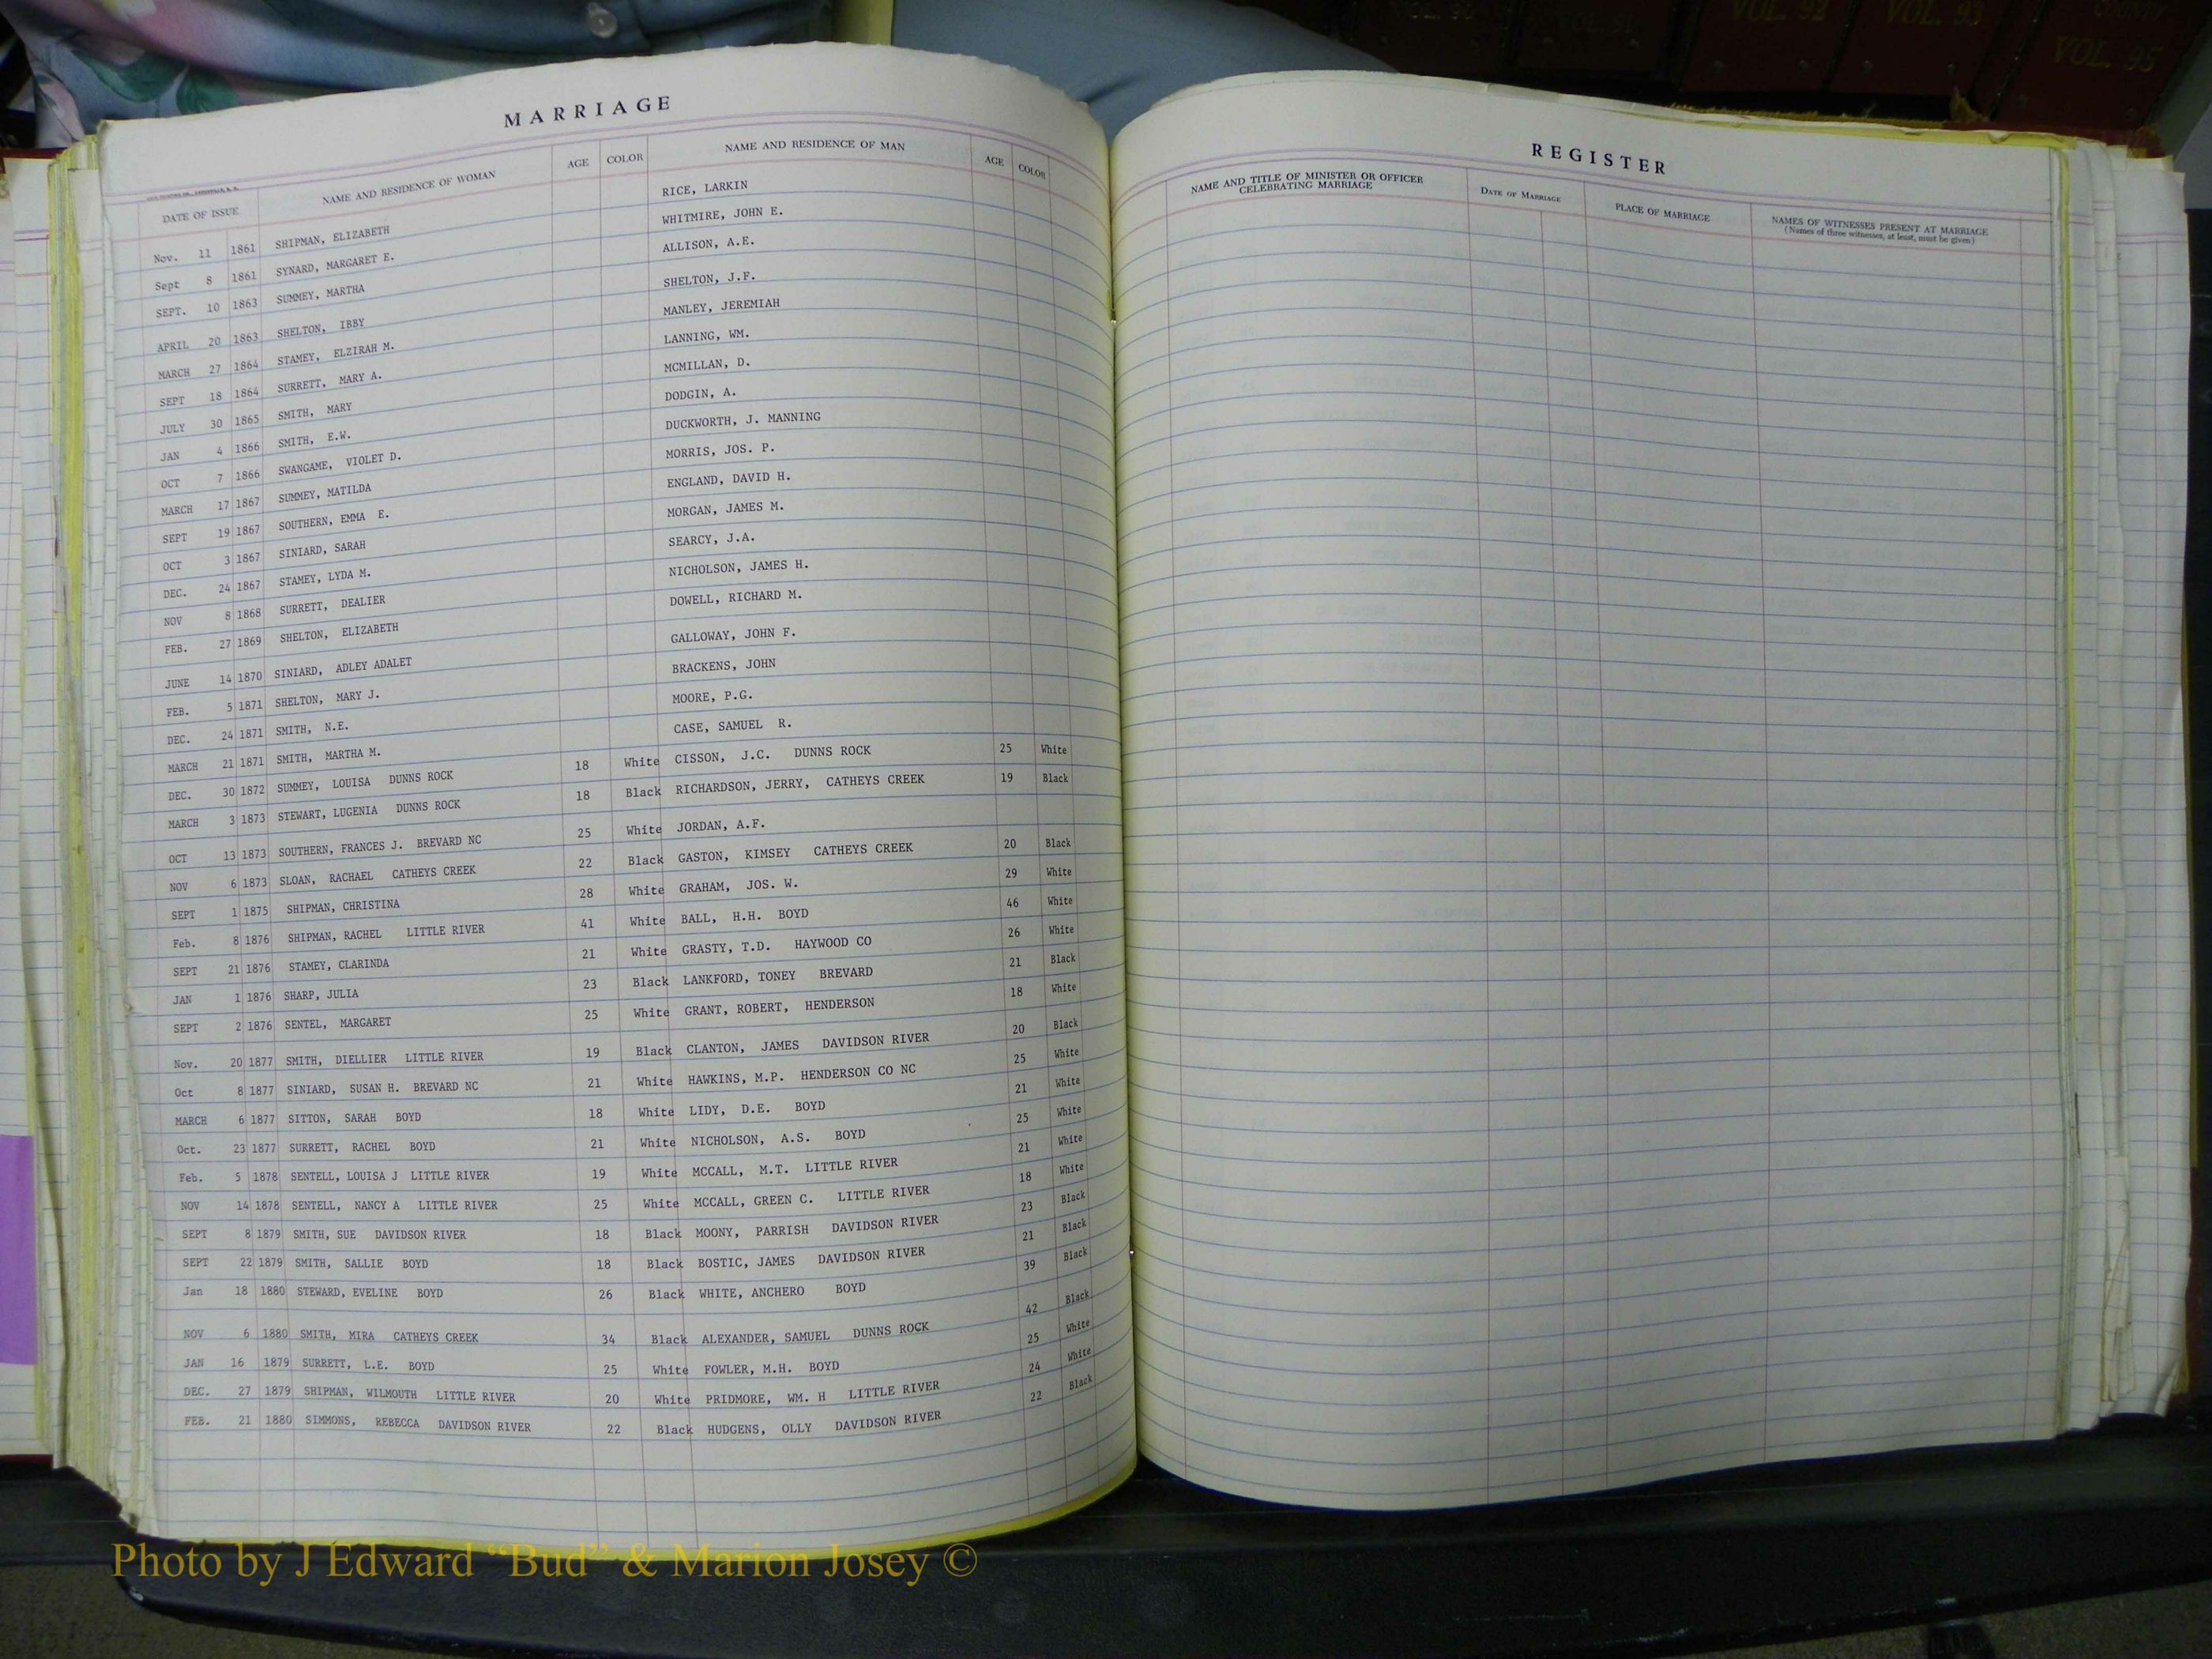 VOL. 92 VOL. 93 COUNTY VOL. 95
MARRIAGE
DATE OF ISSUE NAME AND RESIDENCE OF WOMAN AGE COLOR NAME AND RESIDENCE OF MAN AGE COLOR
Nov. 11 1861 SHIPMAN, ELIZABETH RICE, LARKIN
Sept 8 1861 SYNARD, MARGARET E. WHITMIRE, JOHN E.
SEPT. 10 1863 SUMMEY, MARTHA ALLISON, A.E.
APRIL 20 1863 SHELTON, IBBY SHELTON, J.F.
MARCH 27 1864 STAMEY, ELZIRAH M. MANLEY, JEREMIAH
SEPT 18 1864 SURRETT, MARY A. LANNING, WM.
JULY 30 1865 SMITH, MARY MCMILLAN, D.
JAN 4 1866 SMITH, E.W. DODGIN, A.
OCT 7 1866 SWANGAME, VIOLET D. DUCKWORTH, J. MANNING
MARCH 17 1867 SUMMEY, MATILDA MORRIS, JOS. P.
SEPT 19 1867 SOUTHERN, EMMA E. ENGLAND, DAVID H.
OCT 3 1867 SINIARD, SARAH MORGAN, JAMES M.
DEC. 24 1867 STAMEY, LYDA M. SEARCY, J.A.
NOV 8 1868 SURRETT, DEALIER NICHOLSON, JAMES H.
FEB. 27 1869 SHELTON, ELIZABETH DOWELL, RICHARD M.
JUNE 14 1870 SINIARD, ADLEY ADALET GALLOWAY, JOHN F.
FEB. 5 1871 SHELTON, MARY J. BRACKENS, JOHN
DEC. 24 1871 SMITH, N.E. MOORE, P.G.
MARCH 21 1871 SMITH, MARTHA M. CASE, SAMUEL R.
DEC. 30 1872 SUMMEY, LOUISA DUNNS ROCK 18 White CISSON, J.C. DUNNS ROCK 25 White
MARCH 3 1873 STEWART, LUGENIA DUNNS ROCK 18 Black RICHARDSON, JERRY, CATHEYS CREEK 19 Black
OCT 13 1873 SOUTHERN, FRANCES J. BREVARD NC 25 White JORDAN, A.F.
NOV 6 1873 SLOAN, RACHAEL CATHEYS CREEK 22 Black GASTON, KIMSEY CATHEYS CREEK 20 Black
SEPT 1 1875 SHIPMAN, CHRISTINA 28 White GRAHAM, JOS. W. 29 White
Feb. 8 1876 SHIPMAN, RACHEL LITTLE RIVER 41 White BALL, H.H. BOYD 46 White
SEPT 21 1876 STAMEY, CLARINDA 21 White GRASTY, T.D. HAYWOOD CO 26 White
JAN 1 1876 SHARP, JULIA 23 Black LANKFORD, TONEY BREVARD 21 Black
SEPT 2 1876 SENTEL, MARGARET 25 White GRANT, ROBERT, HENDERSON 18 White
Nov. 20 1877 SMITH, DIELLIER LITTLE RIVER 19 Black CLANTON, JAMES DAVIDSON RIVER 20 Black
Oct 8 1877 SINIARD, SUSAN H. BREVARD NC 21 White HAWKINS, M.P. HENDERSON CO NC 25 White
MARCH 6 1877 SITTON, SARAH BOYD 18 White LIDY, D.E. BOYD 21 White
Oct. 23 1877 SURRETT, RACHEL BOYD 21 White NICHOLSON, A.S. BOYD 25 White
Feb. 5 1878 SENTELL, LOUISA J LITTLE RIVER 19 White MCCALL, M.T. LITTLE RIVER 21 White
NOV 14 1878 SENTELL, NANCY A LITTLE RIVER 25 White MCCALL, GREEN C. LITTLE RIVER 18 White
SEPT 8 1879 SMITH, SUE DAVIDSON RIVER 18 Black MOONY, PARRISH DAVIDSON RIVER 23 Black
SEPT 22 1879 SMITH, SALLIE BOYD 18 Black BOSTIC, JAMES DAVIDSON RIVER 21 Black
Jan 18 1880 STEWARD, EVELINE BOYD 26 Black WHITE, ANCHERO BOYD 39 Black
NOV 6 1880 SMITH, MIRA CATHEYS CREEK 34 Black ALEXANDER, SAMUEL DUNNS ROCK 42 Black
JAN 16 1879 SURRETT, L.E. BOYD 25 White FOWLER, M.H. BOYD 25 White
DEC. 27 1879 SHIPMAN, WILMOUTH LITTLE RIVER 20 White PRIDMORE, WM. H LITTLE RIVER 24 White
FEB. 21 1880 SIMMONS, REBECCA DAVIDSON RIVER 22 Black HUDGENS, OLLY DAVIDSON RIVER 22 Black
REGISTER
NAME AND TITLE OF MINISTER OR OFFICER CELEBRATING MARRIAGE DATE OF MARRIAGE PLACE OF MARRIAGE NAMES OF WITNESSES PRESENT AT MARRIAGE
(Names of three witnesses, at least, must be given)
Photo by J Edward “Bud” & Marion Josey ©